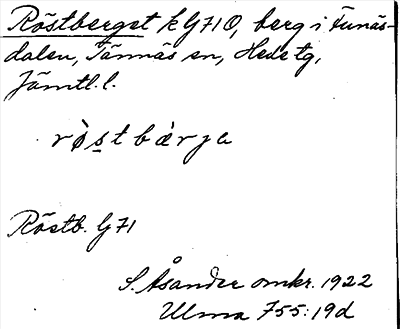 Röstberget k G71 O, berg i Funäs-
dalen, Tännäs sn, Hede tg,
Jämtl. l.
rö̀stbæ̀rja
Röstb. G71
S. Åsander omkr. 1922
Ulma 755:19d